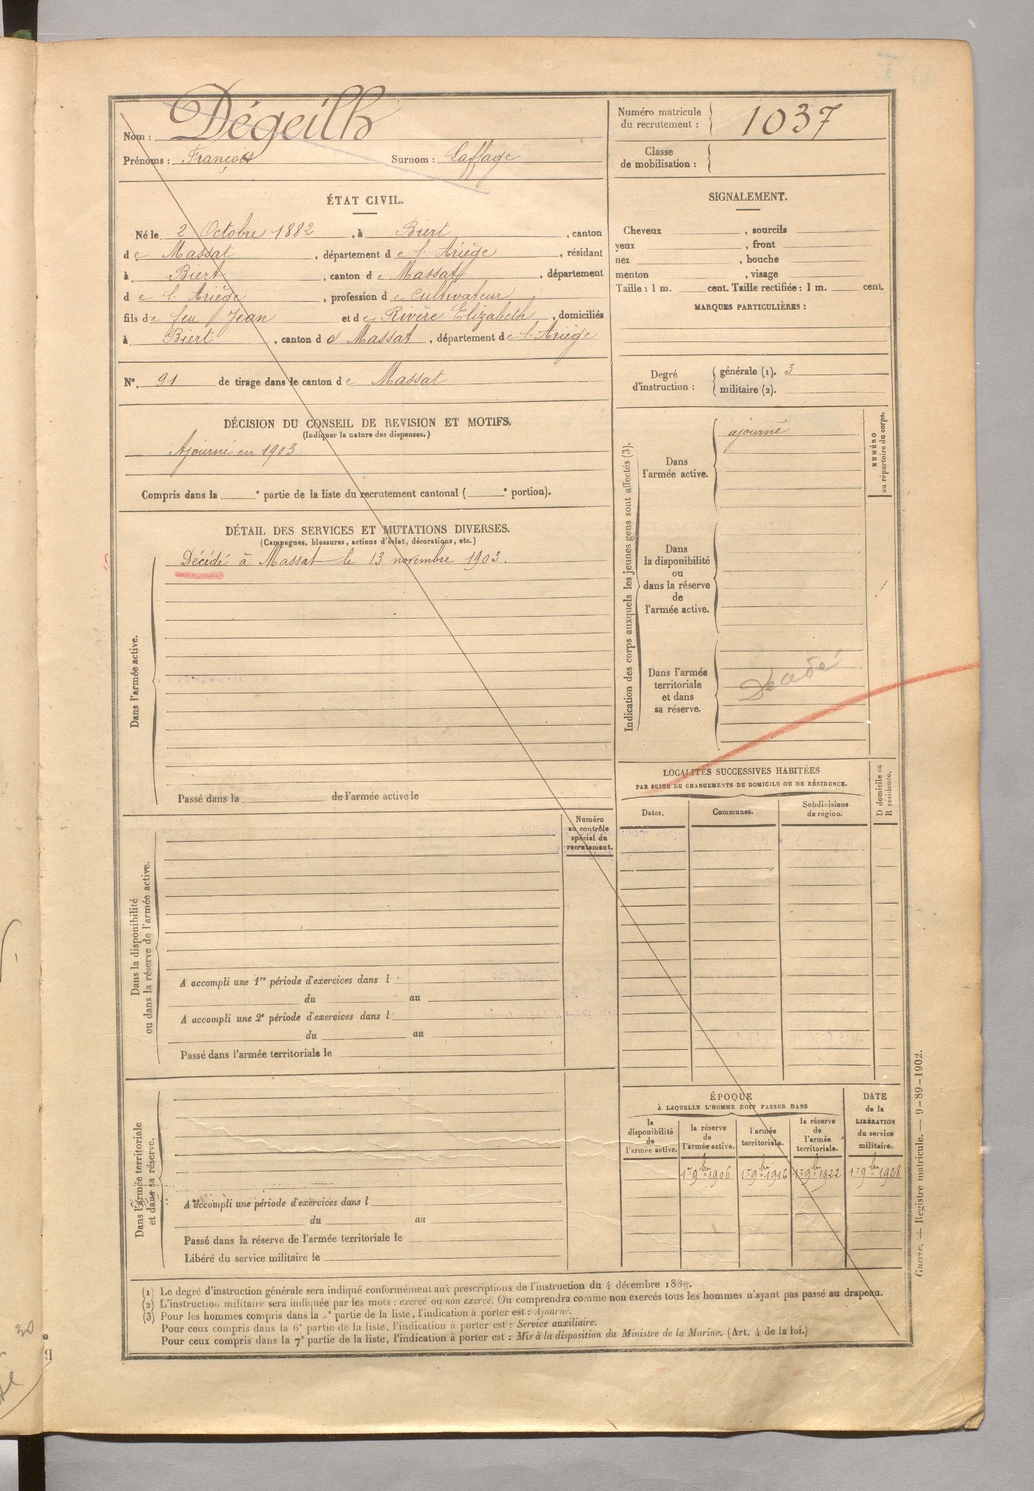 Nom : Dégeilh
Prénoms : François Surnom : Laffage
Numéro matricule du recrutement : 1037
Classe de mobilisation :
ÉTAT CIVIL.
Né le 2 Octobre 1882, à Biert, canton
de Massat, département de l'Ariège, résidant
à Biert, canton de Massat, département
de l'Ariège, profession de Cultivateur
fils de feu Jean et de Rivère Elizabeth, domiciliés
à Biert, canton d Massat, département de l'Ariège
N° 91 de tirage dans le canton de Massat
SIGNALEMENT.
Cheveux , sourcils
yeux , front
nez , bouche
menton , visage
Taille : 1 m. cent. Taille rectifiée : 1 m. cent.
MARQUES PARTICULIÈRES :
Degré d'instruction : générale (1). 3
militaire (2).
DÉCISION DU CONSEIL DE REVISION ET MOTIFS.
(Indiquer la nature des dispenses.)
Ajourné en 1903
Compris dans la e partie de la liste du recrutement cantonal ( e portion).
DÉTAIL DES SERVICES ET MUTATIONS DIVERSES.
(Campagnes, blessures, actions d'éclat, décorations, etc.)
Décédé à Massat le 13 novembre 1903.
Dans l'armée active.
Passé dans la de l'armée active le
Numéro au contrôle spécial du recrutement.
Dans la disponibilité
ou dans la réserve de l'armée active.
A accompli une 1re période d'exercices dans l
du au
A accompli une 2e période d'exercices dans l
du au
Passé dans l'armée territoriale le
Dans l'armée territoriale
et dans sa réserve.
A accompli une période d'exercices dans l
du au
Passé dans la réserve de l'armée territoriale le
Libéré du service militaire le
Indication des corps auxquels les jeunes gens sont affectés (3).
NUMÉRO
au répertoire du corps.
Dans
l'armée active.
ajourné
Dans
la disponibilité
ou
dans la réserve
de
l'armée active.
Dans l'armée
territoriale
et dans
sa réserve.
Décédé
LOCALITÉS SUCCESSIVES HABITÉES
PAR SUITE DE CHANGEMENTS DE DOMICILE OU DE RÉSIDENCE.
Dates. Communes. Subdivisions de région.
D domicile ou
R résidence.
ÉPOQUE
À LAQUELLE L'HOMME DOIT PASSER DANS
la disponibilité de l'armée active.
la réserve de l'armée active.
l'armée territoriale.
la réserve de l'armée territoriale.
DATE de la LIBÉRATION du service militaire.
1er 9bre 1906 1er 9bre 1916 1er 9bre 1922 1er 9bre 1928
(1) Le degré d'instruction générale sera indiqué conformément aux prescriptions de l'instruction du 4 décembre 1889.
(2) L'instruction militaire sera indiquée par les mots : exercé ou non exercé. On comprendra comme non exercés tous les hommes n'ayant pas passé au drapeau.
(3) Pour les hommes compris dans la 5e partie de la liste, l'indication à porter est : Ajourné.
Pour ceux compris dans la 6e partie de la liste, l'indication à porter est : Service auxiliaire.
Pour ceux compris dans la 7e partie de la liste, l'indication à porter est : Mis à la disposition du Ministre de la Marine. (Art. 4 de la loi.)
Guerre. — Registre matricule. — 9-89-1902.